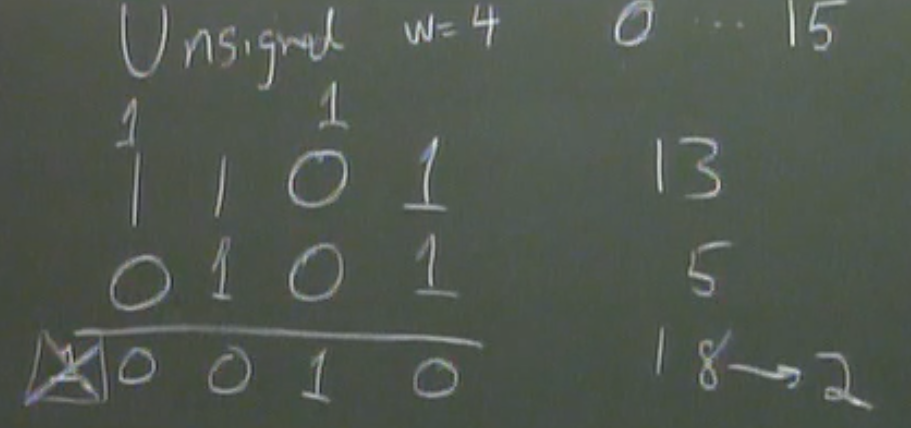 Unsigned w=4 0 ... 15
1 1
1 1 0 1 13
0 1 0 1 5
1 0 0 1 0 18→2